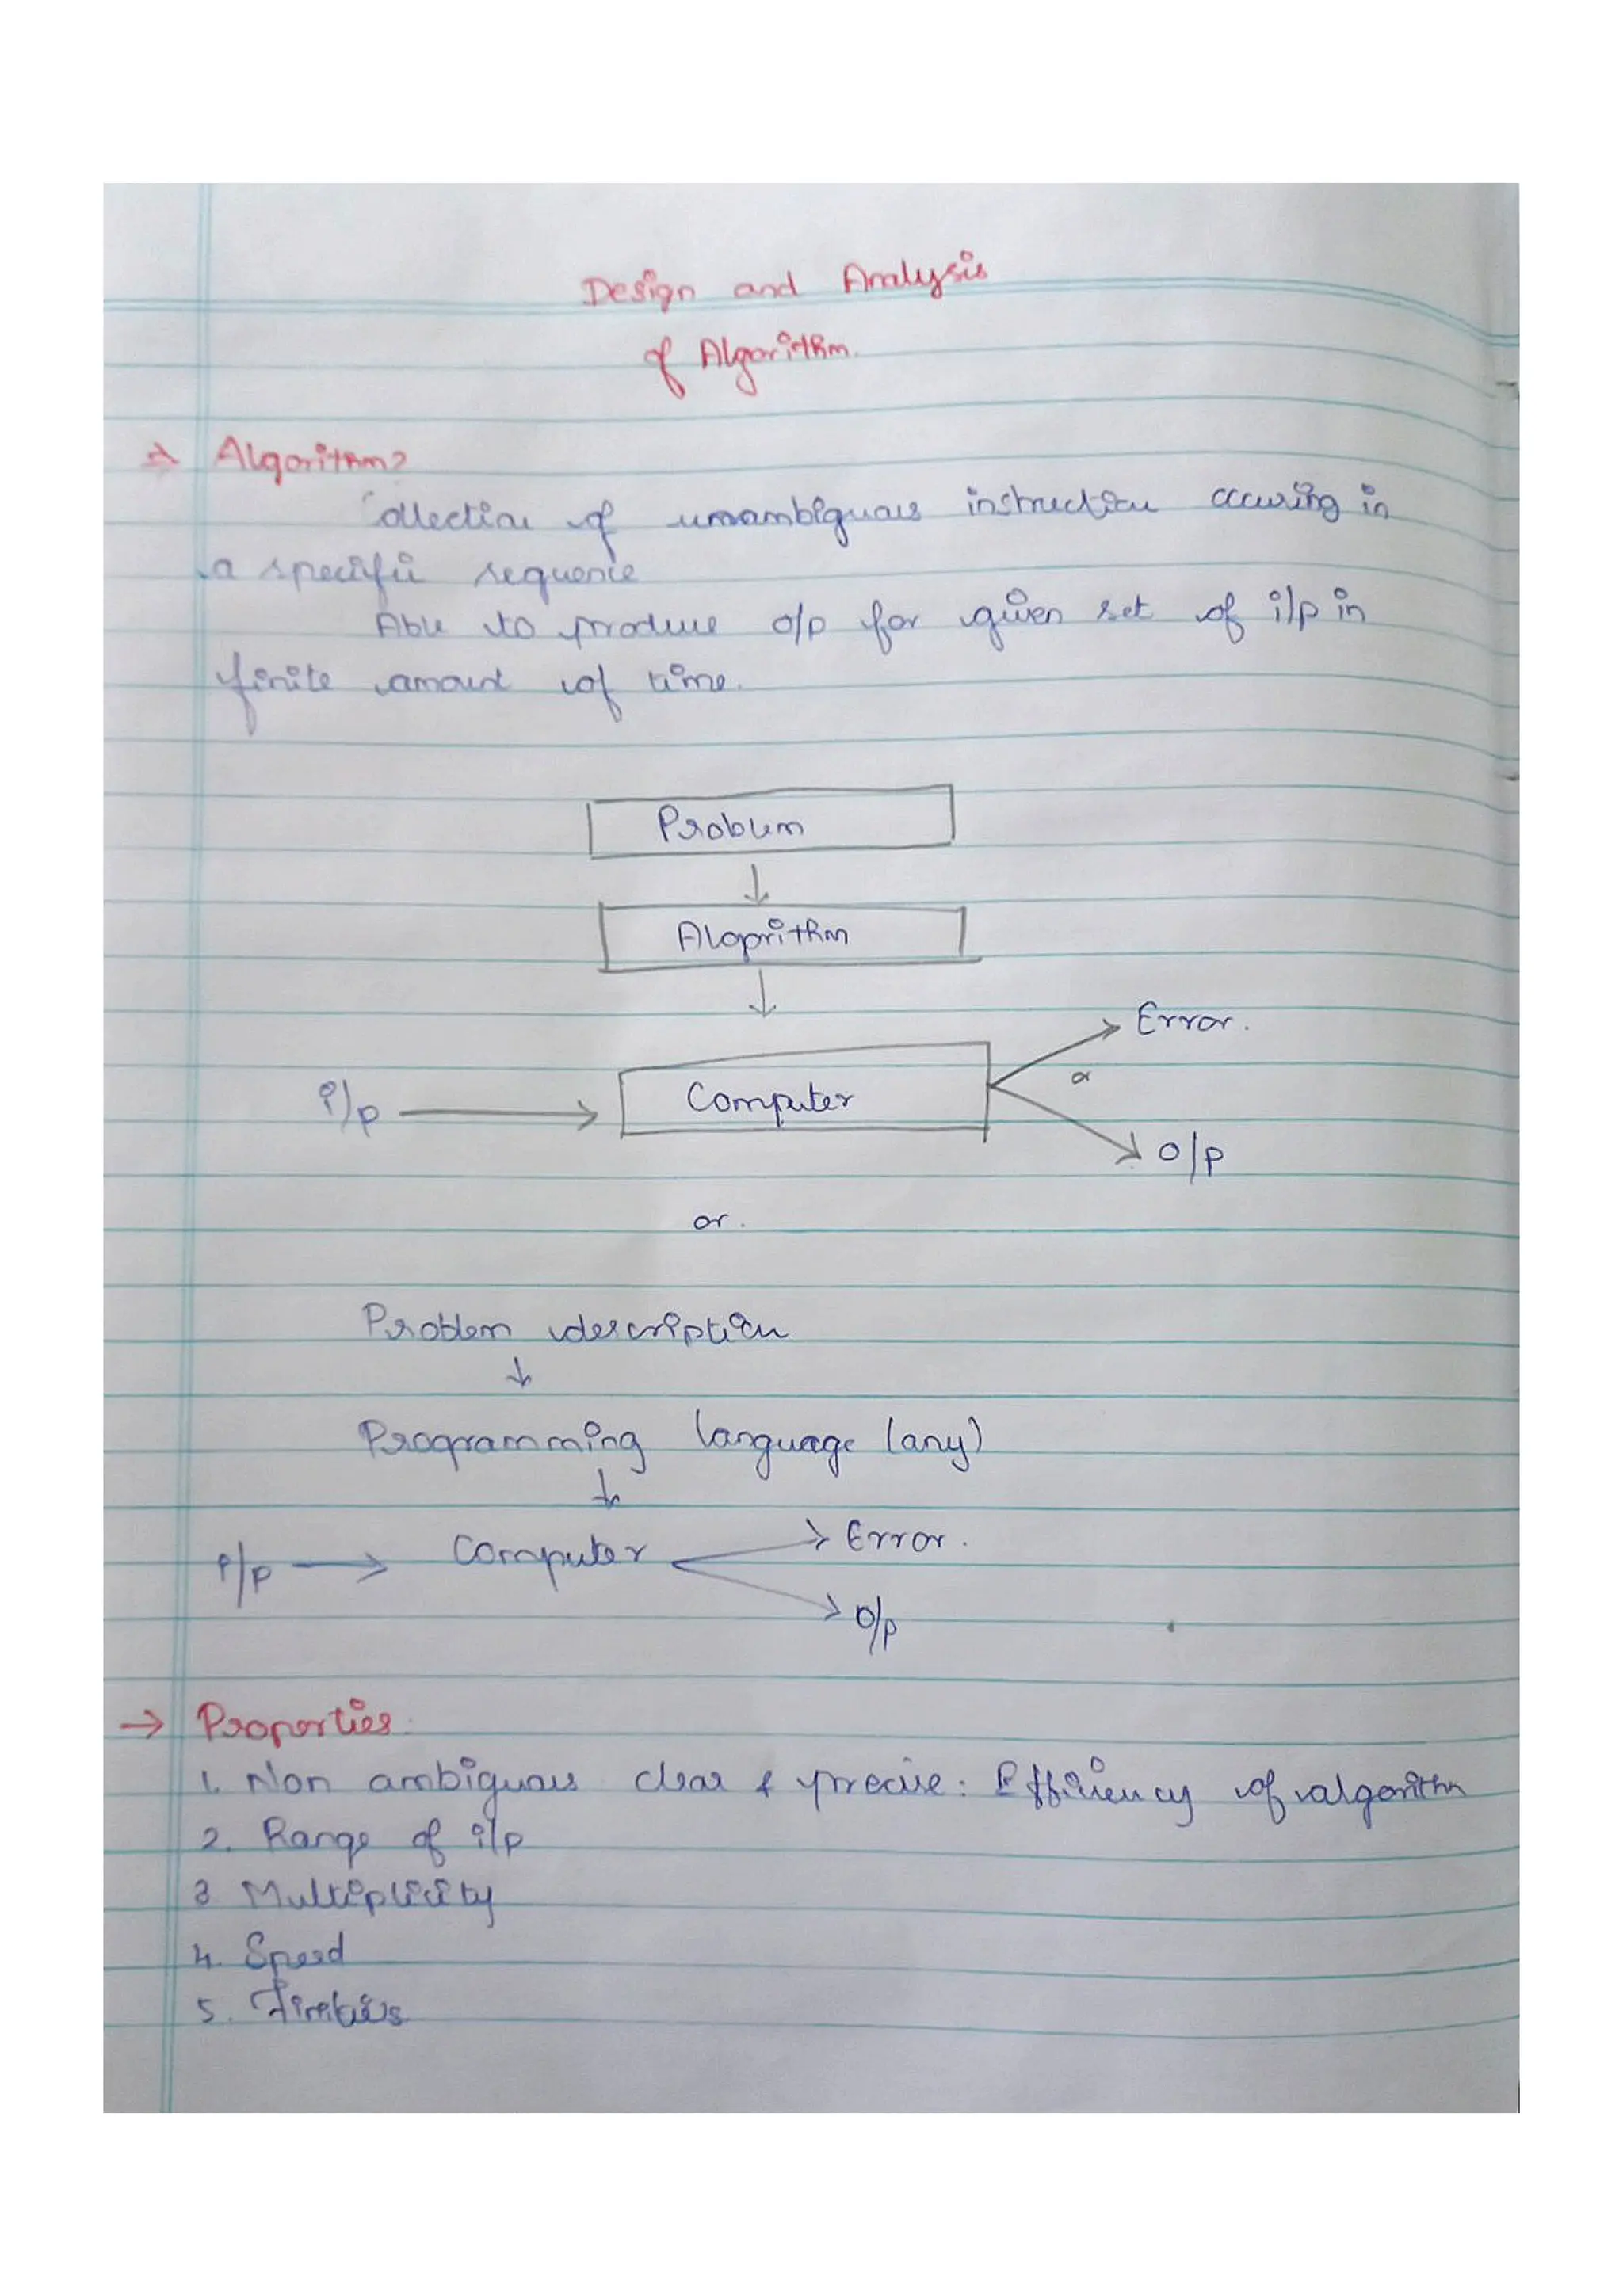 Design and Analysis
of Algorithm.
→ Algorithm?
Collection of unambiguous instruction occuring in
a specific sequence
Able to produce o/p for given set of i/p in
finite amount of time.
Problem
↓
Algorithm
↓
Error.
i/p → Computer or
o/p
or.
Problem description
↓
Programming language (any)
↓
i/p → Computer → Error.
→ o/p
→ Properties.
1. Non ambiguous clear & precise: Efficiency of algorithm
2. Range of i/p
3 Multiplicity
4. Speed
5.